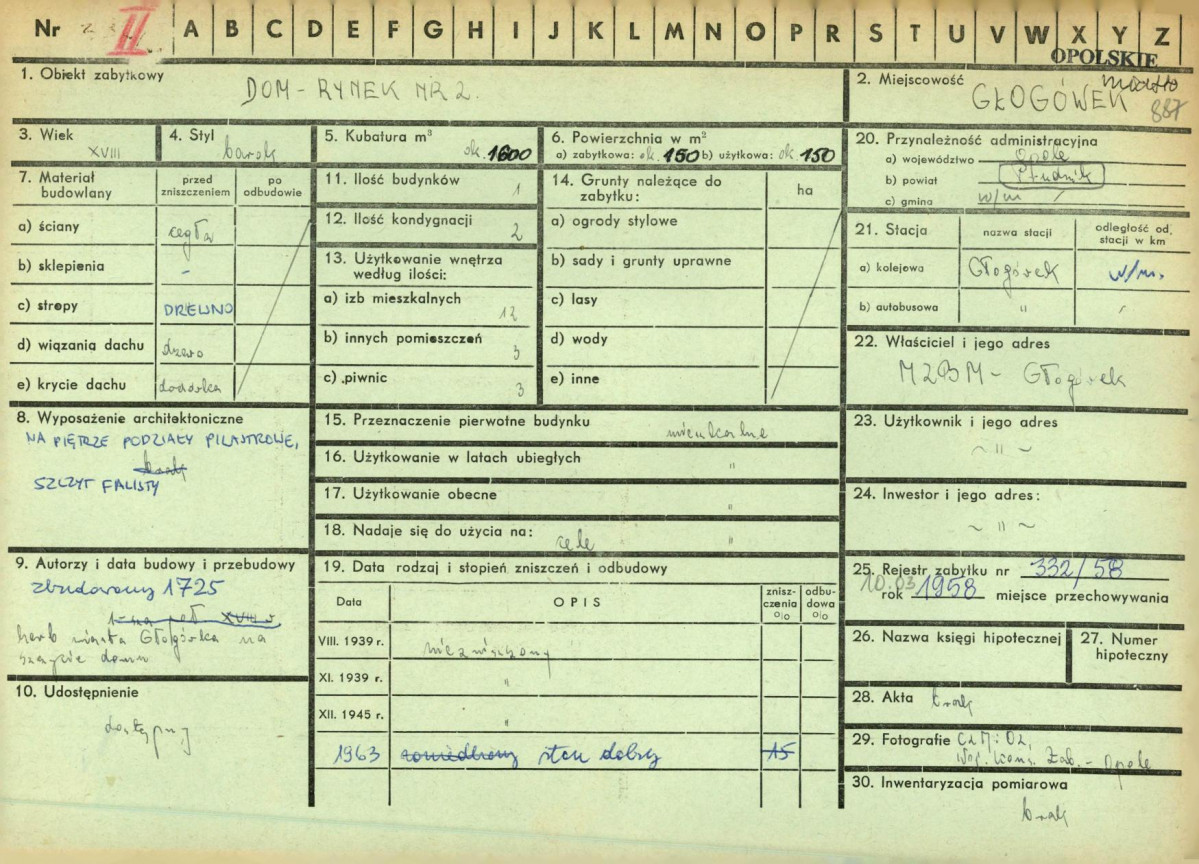 Nr II A B C D E F G H I J K L M N O P R S T U V W X Y Z
OPOLSKIE
1. Obiekt zabytkowy
DOM - RYNEK NR 2.
2. Miejscowość miasto
GŁOGÓWEK 887
3. Wiek
XVIII
4. Styl
barok
5. Kubatura m³
ok. 1600
6. Powierzchnia w m²
a) zabytkowa: ok. 150 b) użytkowa: ok 150
7. Materiał budowlany
przed zniszczeniem
po odbudowie
a) ściany cegła
b) sklepienia -
c) stropy DREWNO
d) wiązania dachu drzewo
e) krycie dachu dachówka
8. Wyposażenie architektoniczne
NA PIĘTRZE PODZIAŁY PILASTROWE,
brak
SZCZYT FALISTY
9. Autorzy i data budowy i przebudowy
zbudowany 1725
XVIII w
herb miasta Głogówka na
szczycie domu
10. Udostępnienie
dostępny
11. Ilość budynków 1
12. Ilość kondygnacji 2
13. Użytkowanie wnętrza
według ilości:
a) izb mieszkalnych 12
b) innych pomieszczeń 3
c) piwnic 3
14. Grunty należące do
zabytku:
ha
a) ogrody stylowe
b) sady i grunty uprawne
c) lasy
d) wody
e) inne
15. Przeznaczenie pierwotne budynku
mieszkalne
16. Użytkowanie w latach ubiegłych "
17. Użytkowanie obecne "
18. Nadaje się do użycia na: cele "
19. Data rodzaj i stopień zniszczeń i odbudowy
Data OPIS znisz-czenia % odbu-dowa %
VIII. 1939 r. niezniszczony
XI. 1939 r. "
XII. 1945 r. "
1963 stan dobry 15
20. Przynależność administracyjna
a) województwo Opole
b) powiat Prudnik
c) gmina w/m
21. Stacja
nazwa stacji
odległość od stacji w km
a) kolejowa Głogówek w/m.
b) autobusowa "
22. Właściciel i jego adres
MZBM - Głogówek
23. Użytkownik i jego adres
~ " ~
24. Inwestor i jego adres:
~ " ~
25. Rejestr zabytku nr 332/58
10.03
rok 1958 miejsce przechowywania
26. Nazwa księgi hipotecznej
27. Numer hipoteczny
28. Akta brak
29. Fotografie CZM i OZ,
Woj. Kons. Zab. - Opole
30. Inwentaryzacja pomiarowa
brak